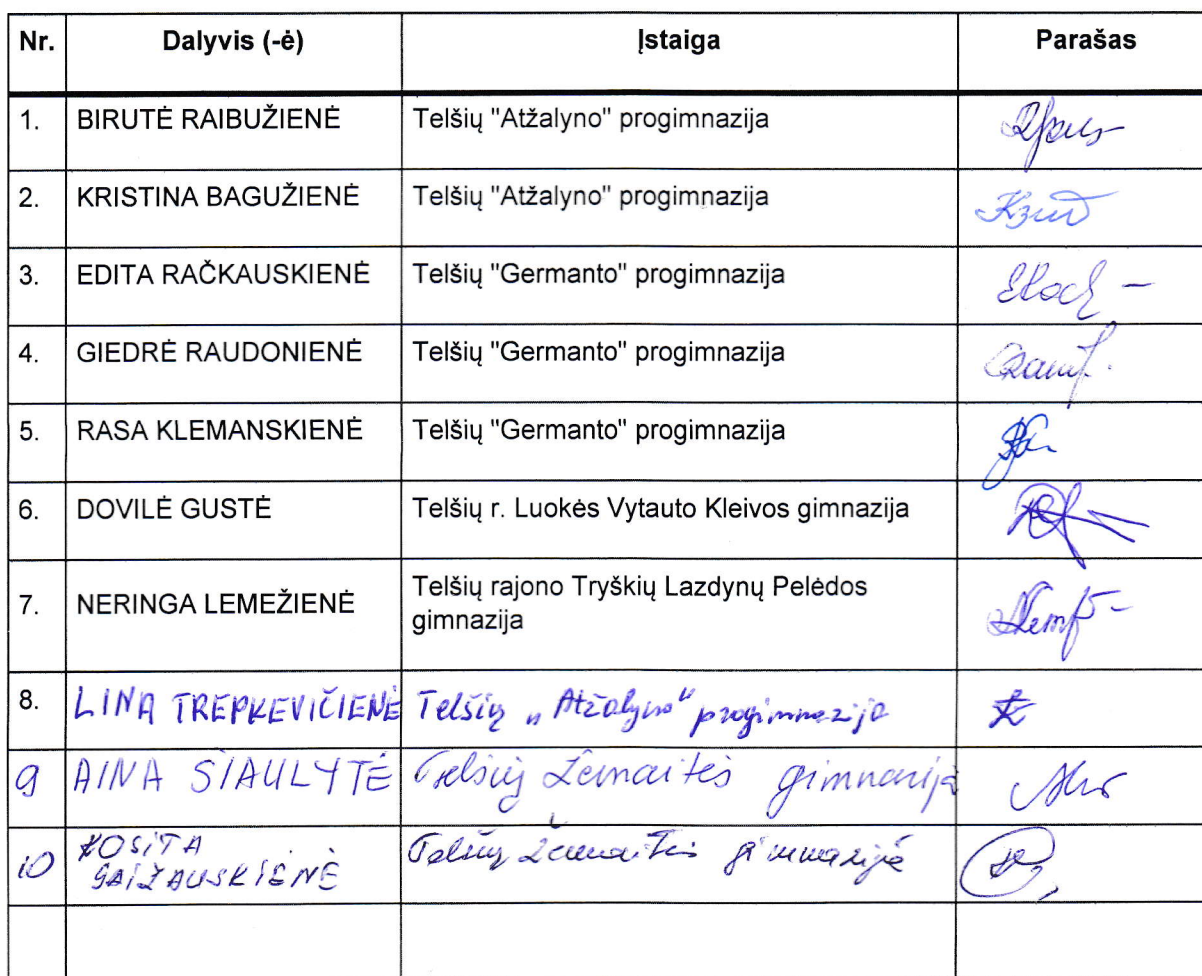 Nr. Dalyvis (-ė) Įstaiga Parašas
1. BIRUTĖ RAIBUŽIENĖ Telšių "Atžalyno" progimnazija
2. KRISTINA BAGUŽIENĖ Telšių "Atžalyno" progimnazija
3. EDITA RAČKAUSKIENĖ Telšių "Germanto" progimnazija
4. GIEDRĖ RAUDONIENĖ Telšių "Germanto" progimnazija
5. RASA KLEMANSKIENĖ Telšių "Germanto" progimnazija
6. DOVILĖ GUSTĖ Telšių r. Luokės Vytauto Kleivos gimnazija
7. NERINGA LEMEŽIENĖ Telšių rajono Tryškių Lazdynų Pelėdos
gimnazija
8. LINA TREPKEVIČIENĖ Telšių „Atžalyno" progimnazija
9 AINA SIAULYTĖ Telšių Žemaitės gimnazija
10 ROSITA
GAIŽAUSKIENĖ Telšių Žemaitės gimnazija